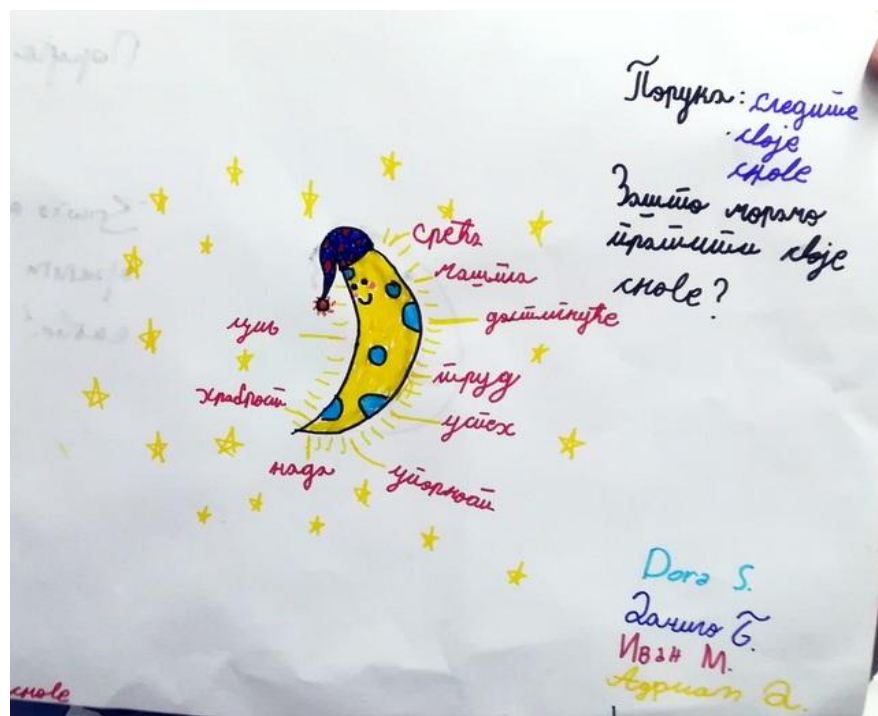 Порука: следите
своје
снове
Зашто морамо
пратити своје
снове?
срећа
машта
достигнуће
циљ
труд
храброст
успех
нада
упорност
Dora S.
Данило Б.
Иван М.
Адриан Д.
снове